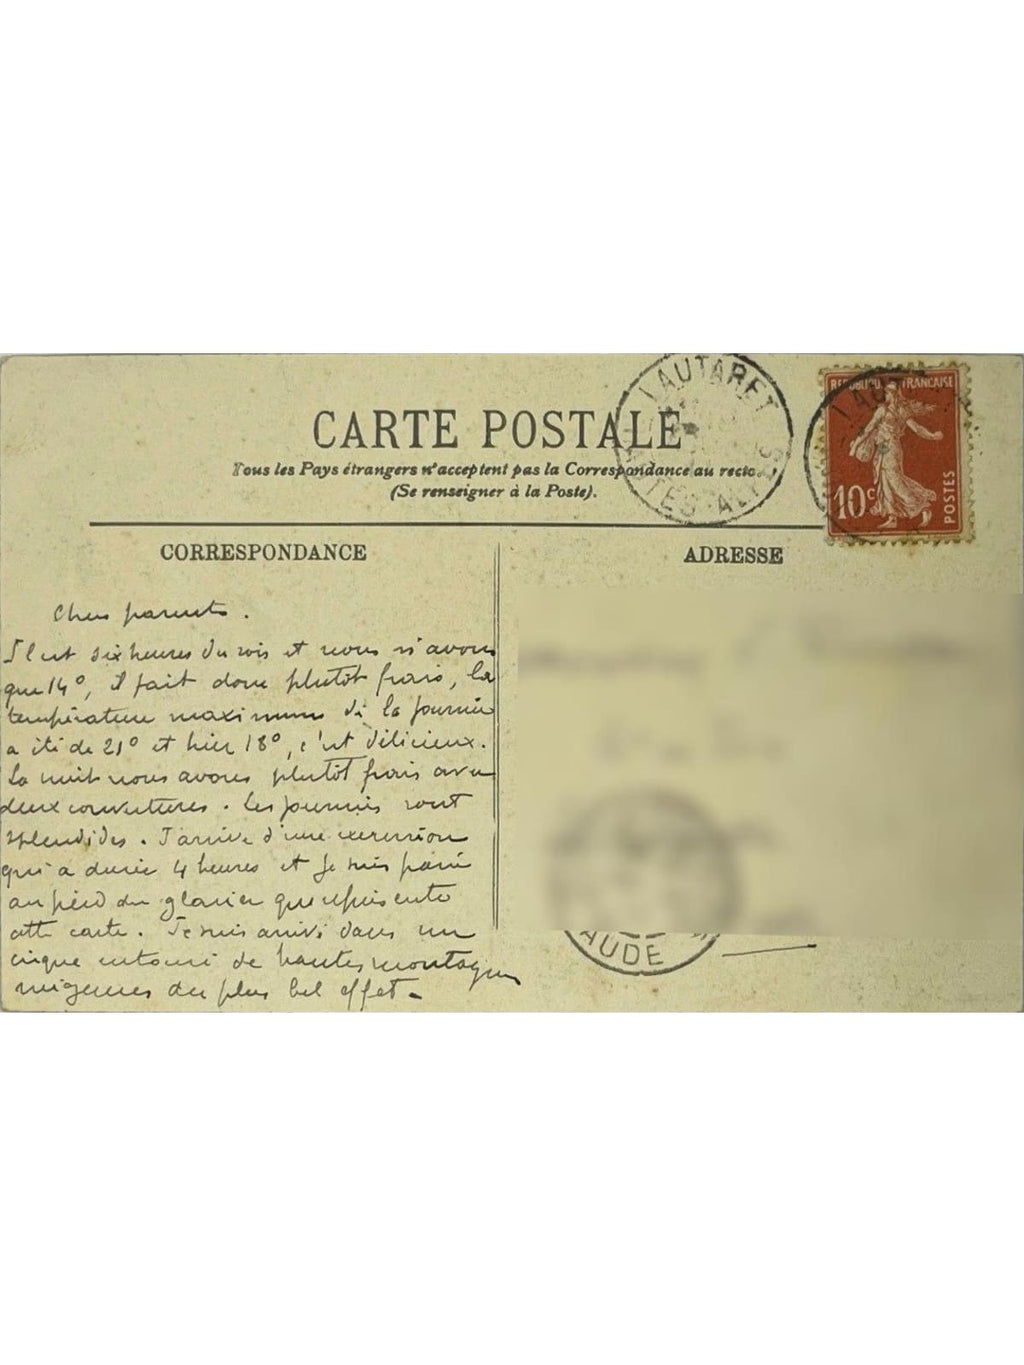 CARTE POSTALE
Tous les Pays étrangers n'acceptent pas la Correspondance au recto
(Se renseigner à la Poste).
LAUTARET
HAUTES-ALPES
REPUBLIQUE FRANÇAISE
10c
POSTES
LAU
CORRESPONDANCE
ADRESSE
Chers parents.
Il est six heures du soir et nous n'avons
que 14°, il fait donc plutôt frais, la
température maximum de la journée
a été de 21° et hier 18°, c'est délicieux.
La nuit nous avons plutôt frais avec
deux couvertures. Les journées sont
splendides. J'arrive d'une excursion
qui a durée 4 heures et je suis passé
au pied du glacier que représente
cette carte. Je suis arrivé dans un
cirque entouré de hautes montagnes
neigeuses du plus bel effet.
AUDE